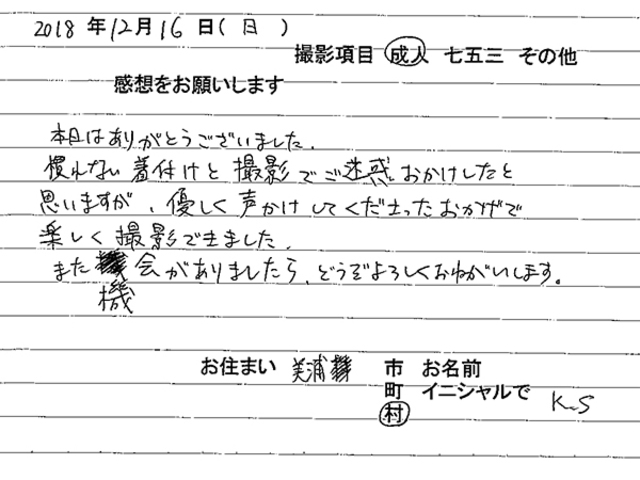 2018年12月16日(日)
撮影項目 成人 七五三 その他
感想をお願いします
本日はありがとうございました.
慣れない着付けと撮影でご迷惑おかけしたと
思いますが、優しく声かけしてくださったおかげで
楽しく撮影できました.
また機会がありましたら、どうぞよろしくおねがいします。
お住まい 美浦 市 お名前
町 イニシャルで K.S
村